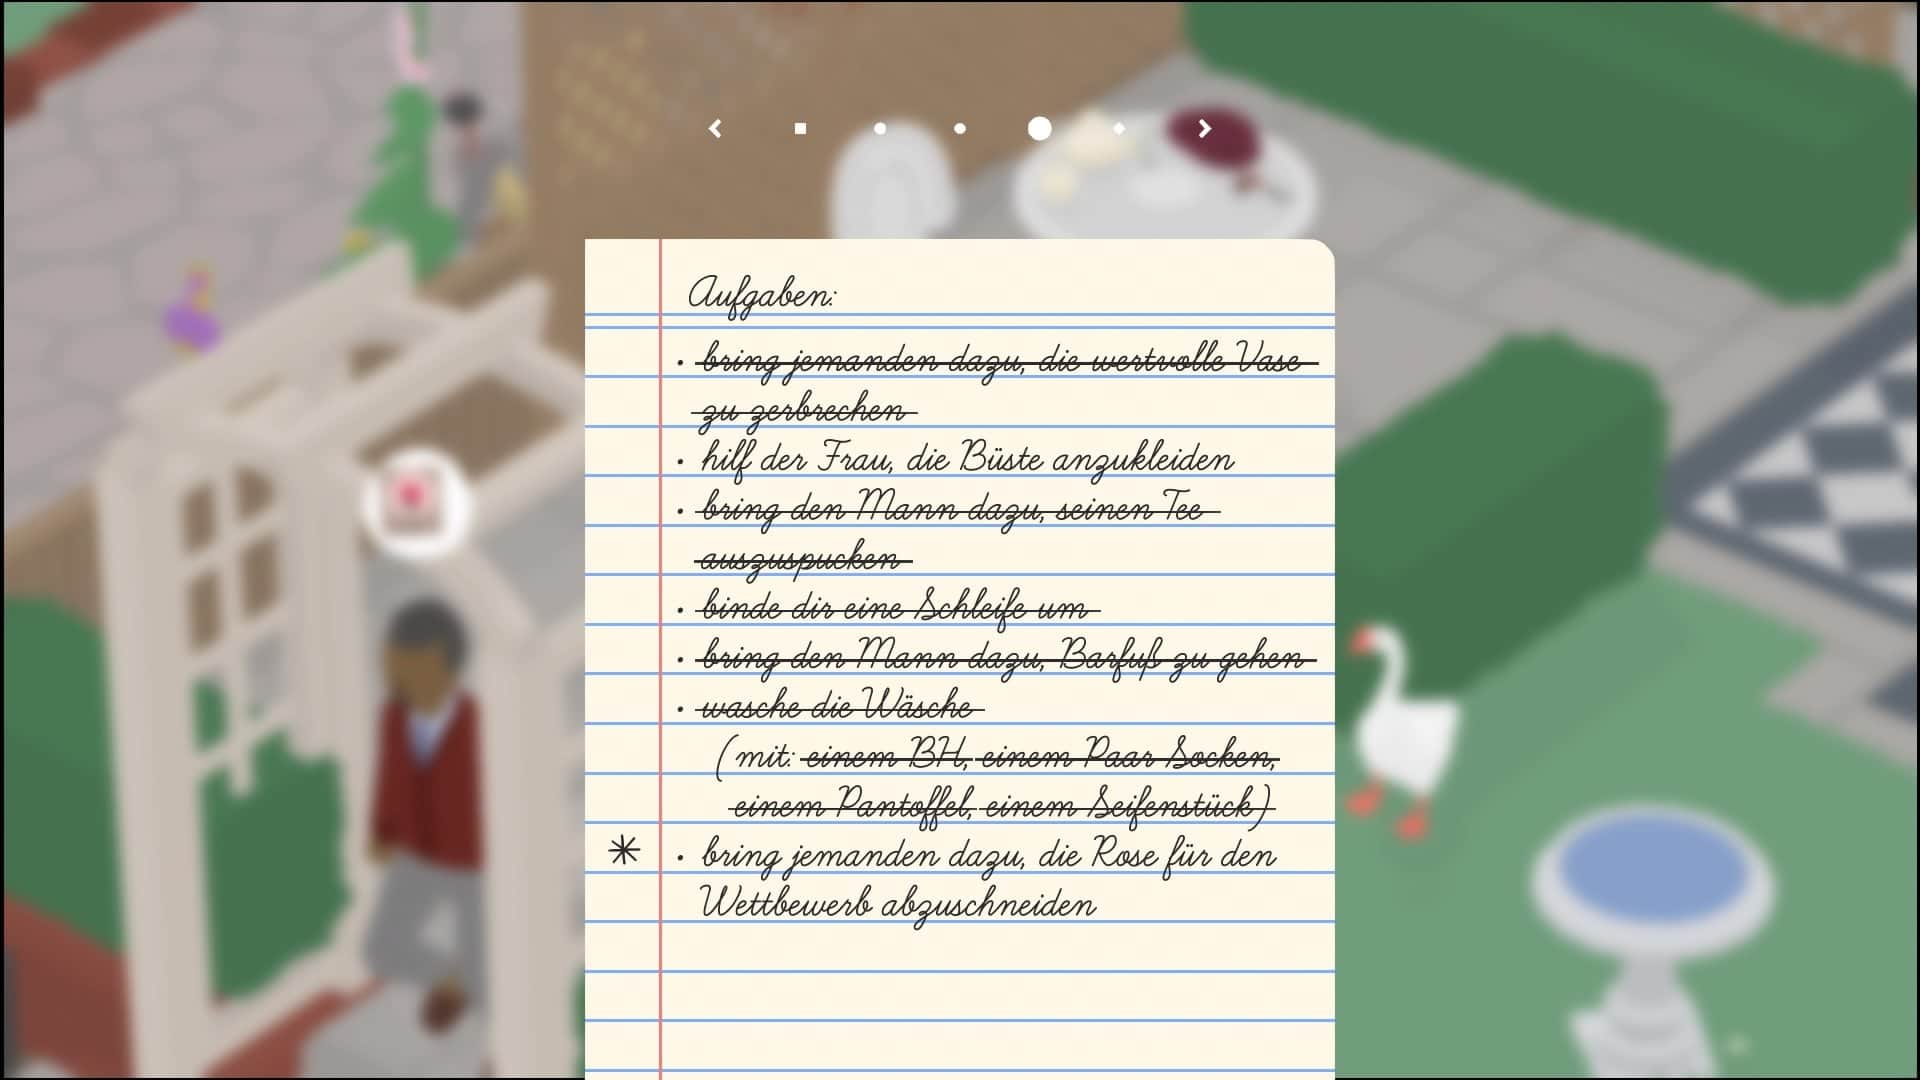 Aufgaben:
• bring jemanden dazu, die wertvolle Vase
zu zerbrechen
• hilf der Frau, die Büste anzukleiden
• bring den Mann dazu, seinen Tee
auszuspucken
• binde dir eine Schleife um
• bring den Mann dazu, Barfuß zu gehen
• wasche die Wäsche
(mit: einem BH, einem Paar Socken,
einem Pantoffel, einem Seifenstück)
* • bring jemanden dazu, die Rose für den
Wettbewerb abzuschneiden